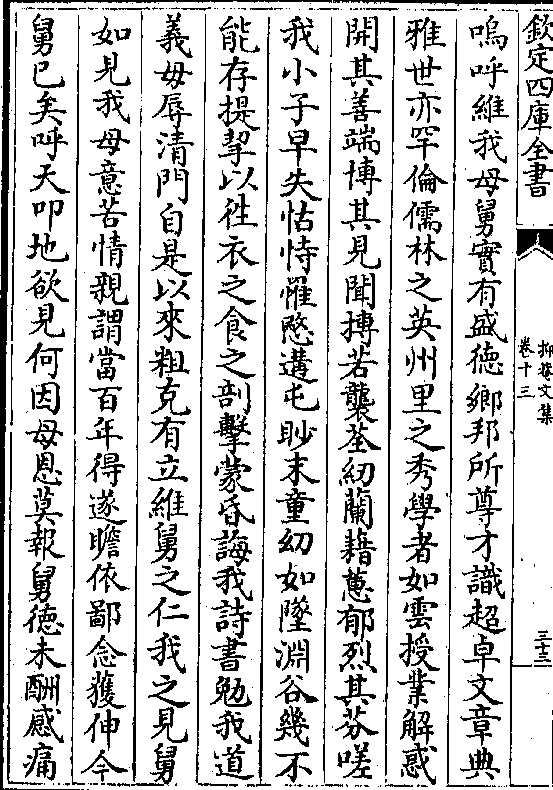 欽定四庫全書
抑菴文集
卷十三
三十三
嗚呼維我母舅實有盛德鄉邦所尊才識超卓文章典
雅世亦罕倫儒林之英州里之秀學者如雲授業解惑
開其善端博其見聞摶若襲荃紉蘭藉蕙郁烈其芬嗟
我小子早失怙恃罹愍遘屯眇末童幼如墜淵谷幾不
能存提挈以徃衣之食之剖擊蒙昏誨我詩書勉我道
義毋辱清門自是以來粗克有立維舅之仁我之見舅
如見我母意苦情親謂當百年得遂瞻依鄙念獲伸今
舅已矣呼天叩地欲見何因母恩莫報舅徳未酬感痛